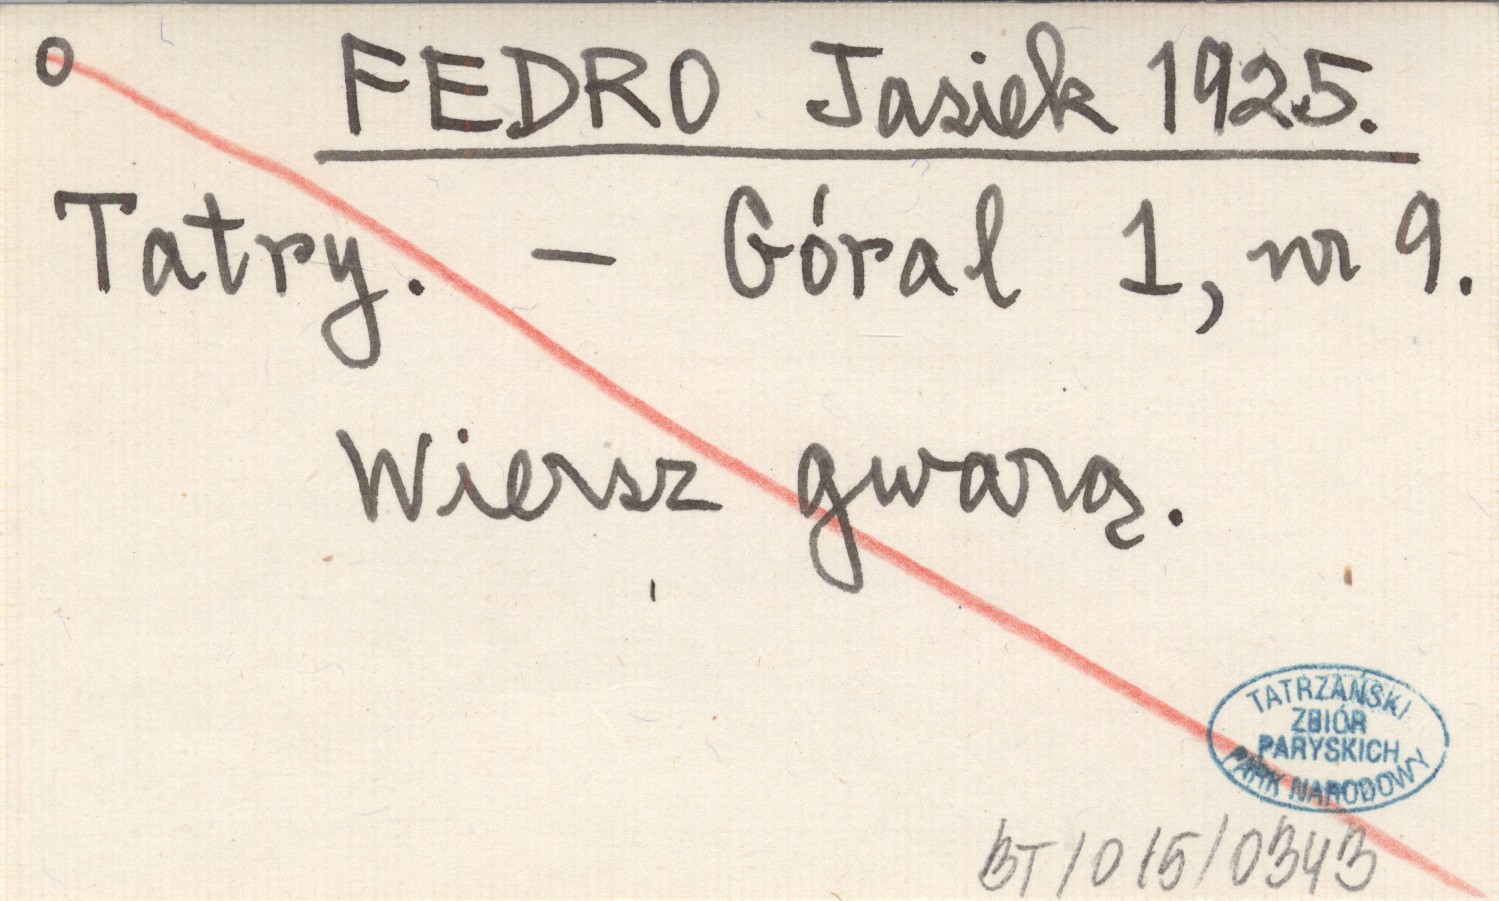 O FEDRO Jasiek 1925.
Tatry. — Góral 1, nr 9.
Wiersz gwarą.
TATRZAŃSKI
ZBIÓR
PARYSKICH
PARK NARODOWY
BT/015/0343